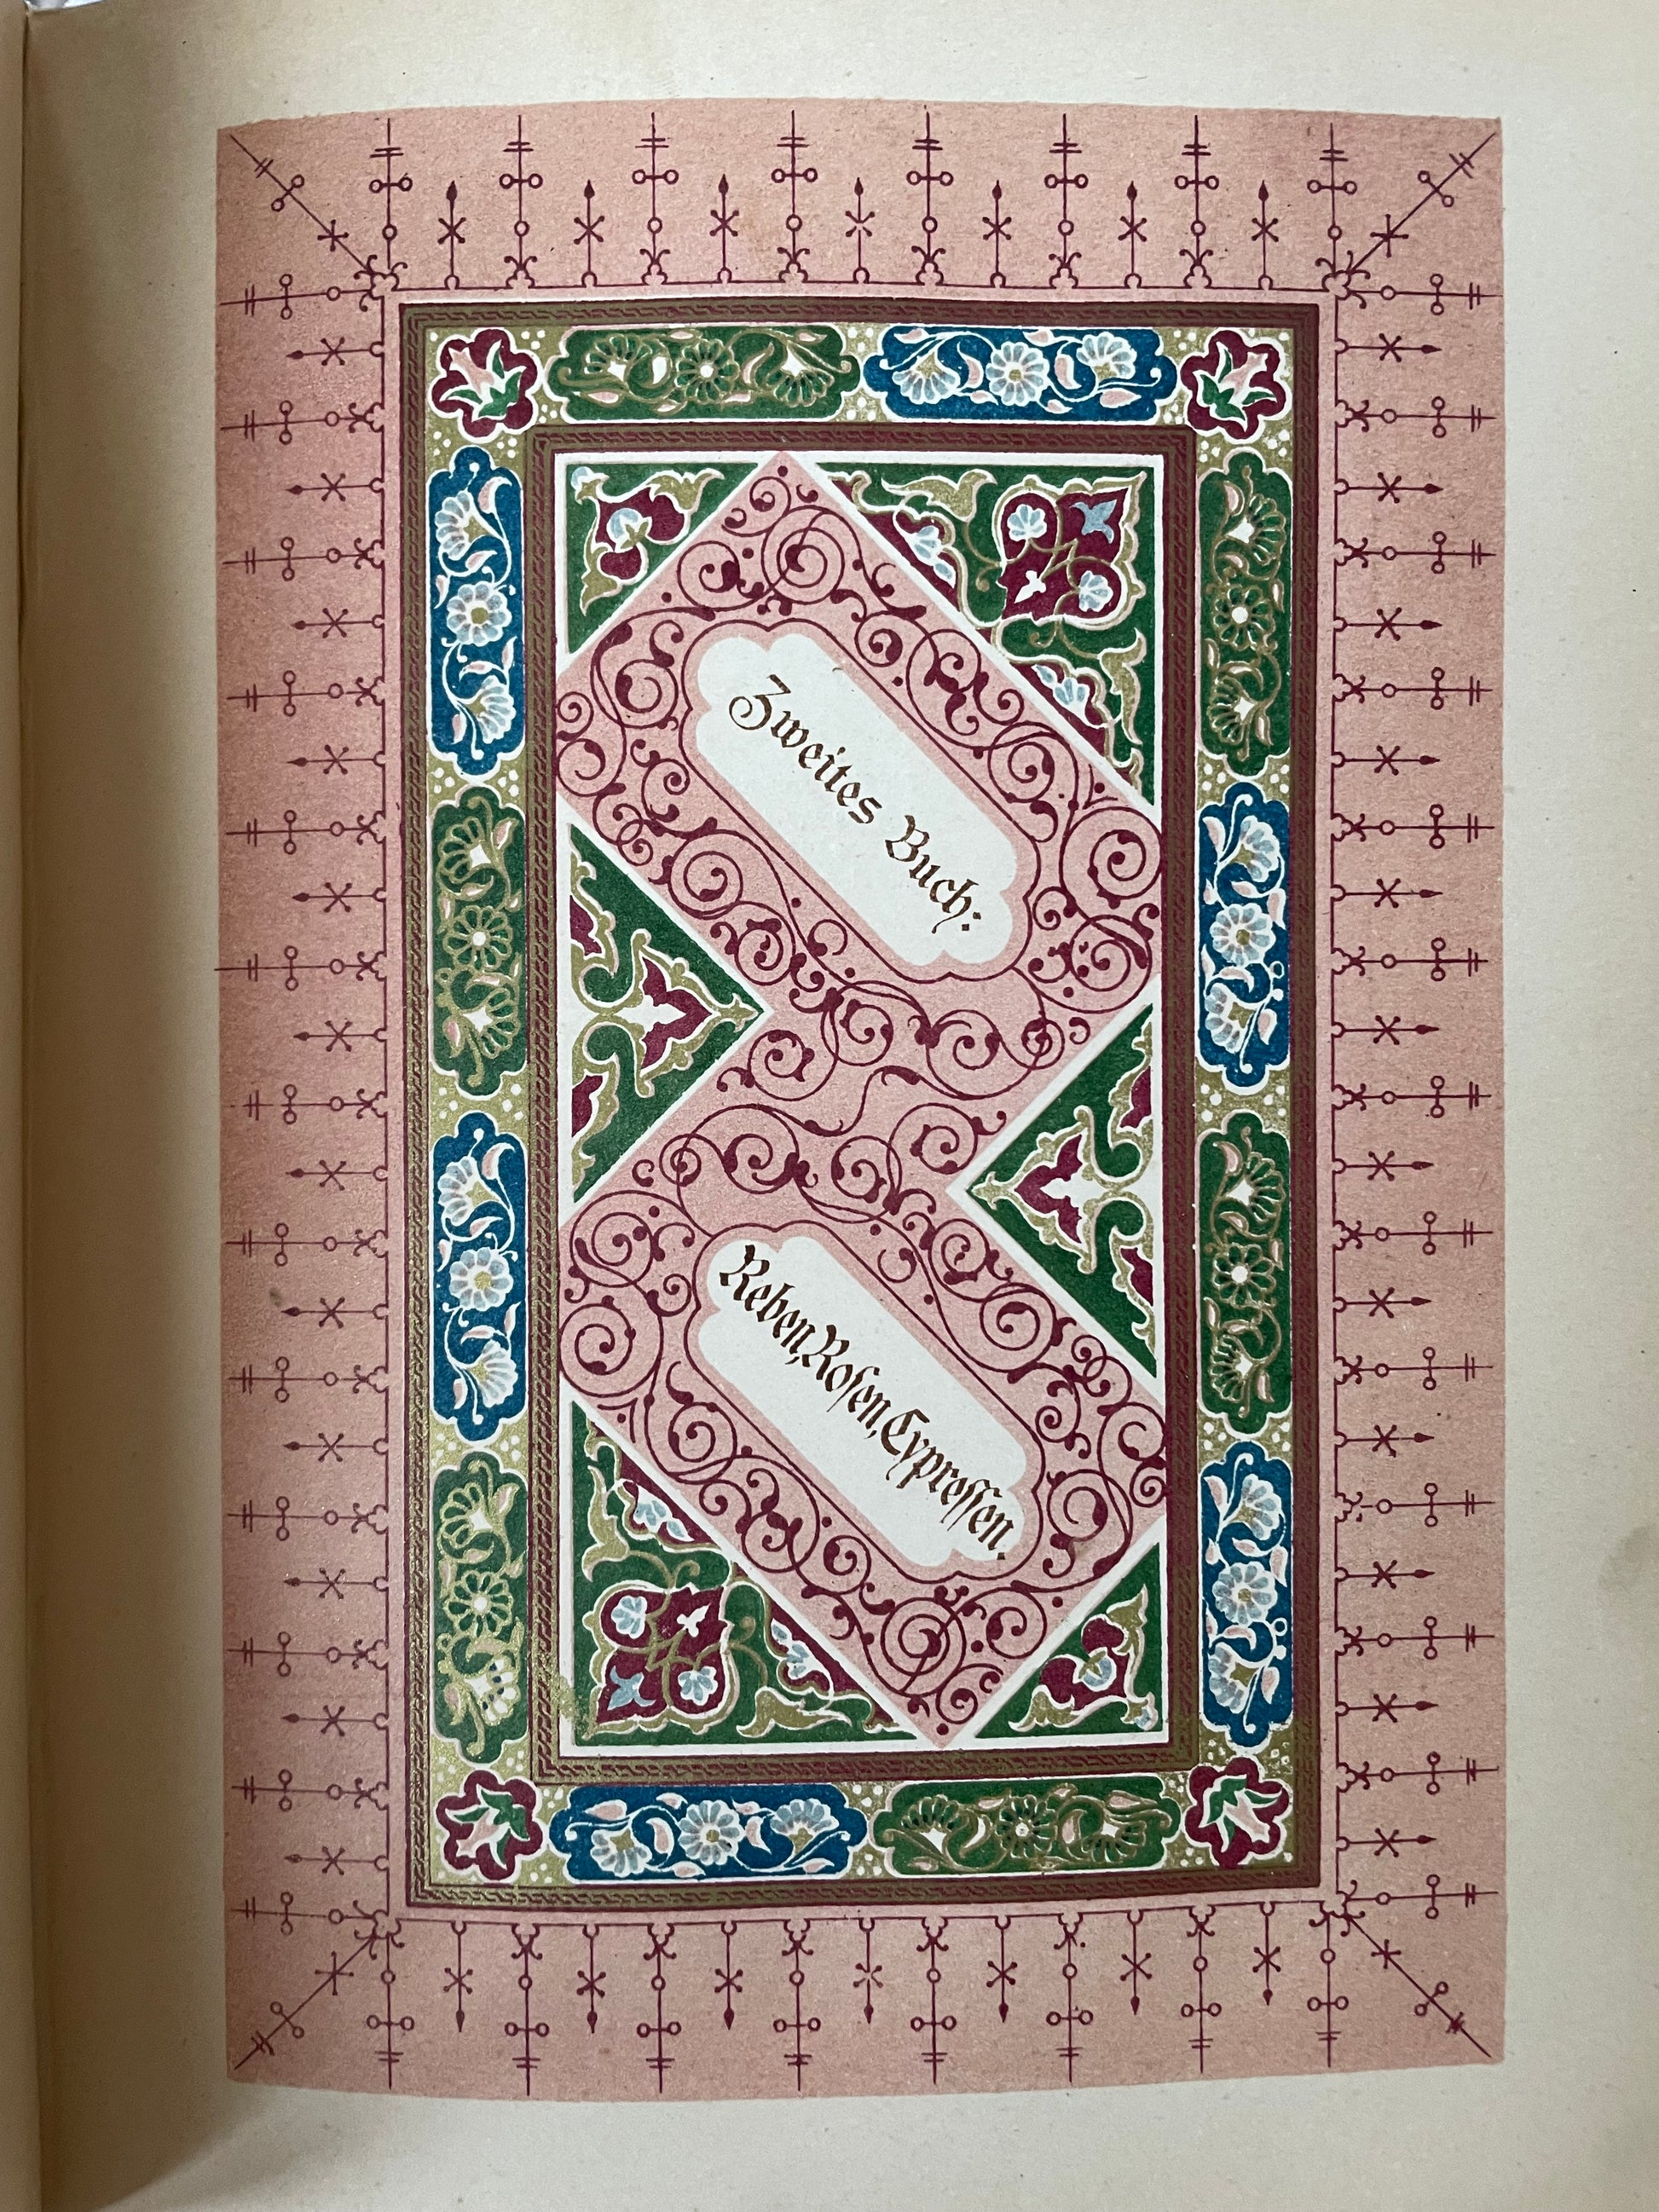 Zweites Buch:
Reben, Rosen, Cypressen.